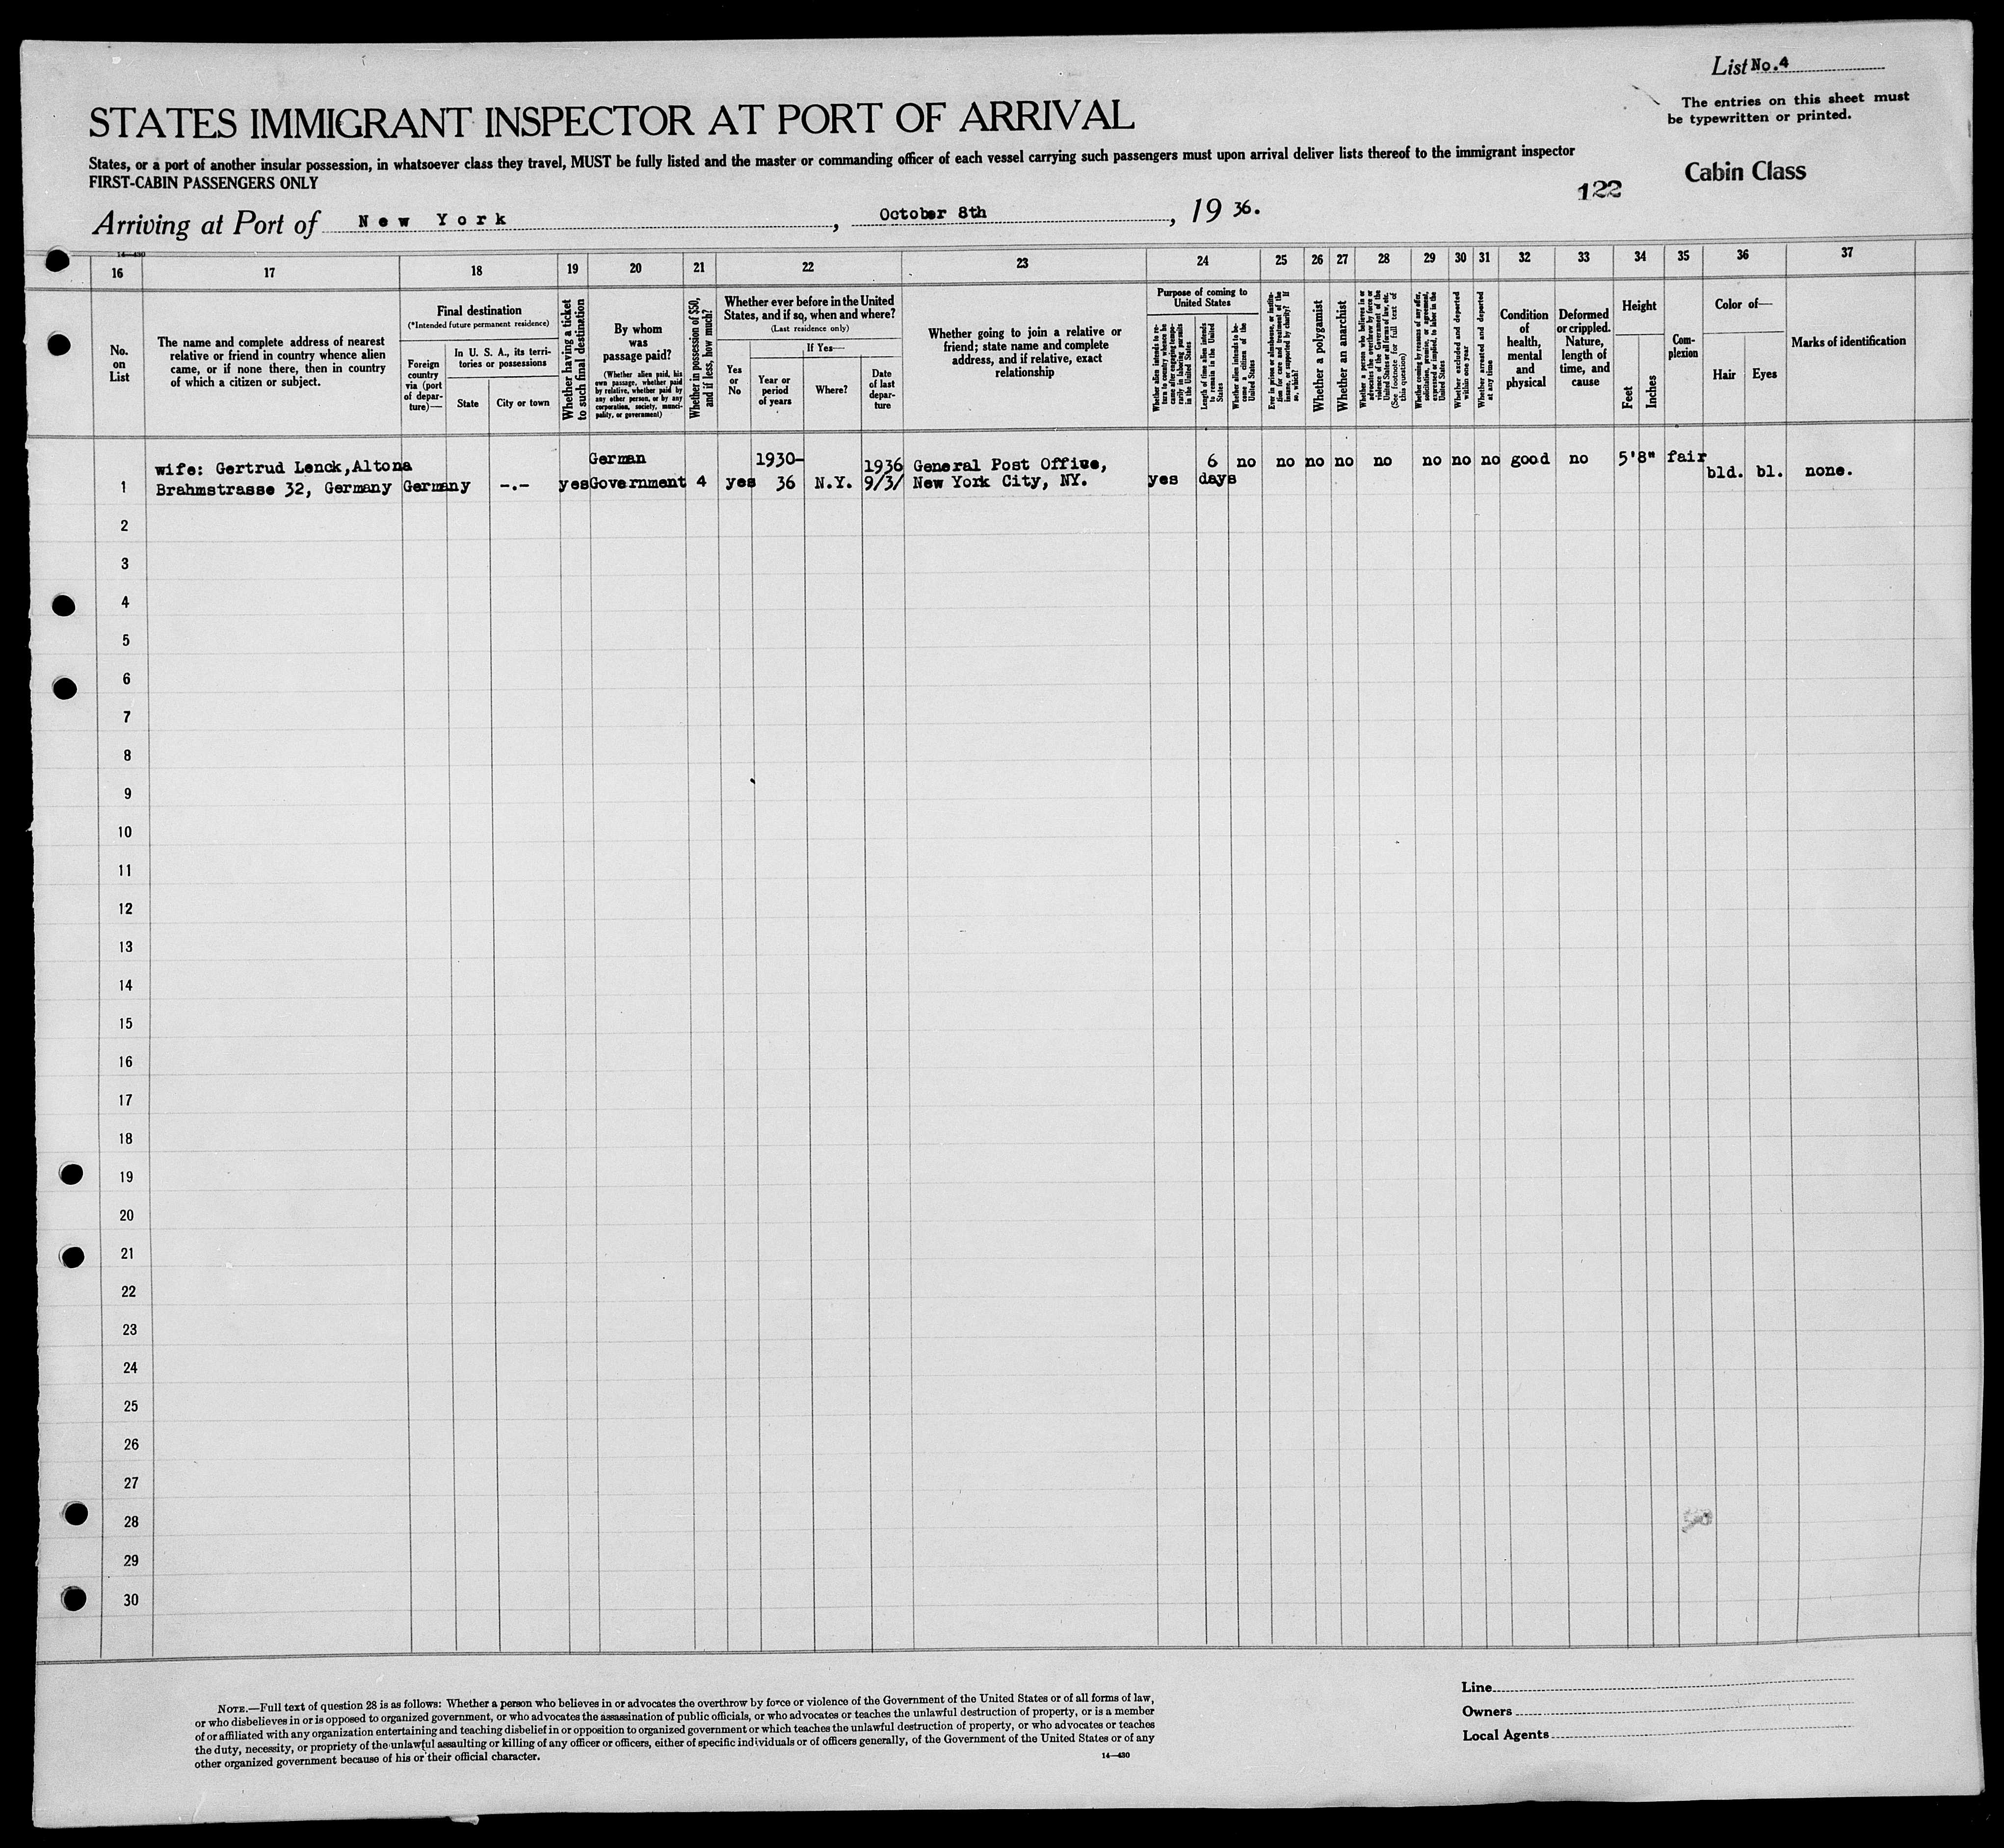 List No.4
The entries on this sheet must
be typewritten or printed.
STATES IMMIGRANT INSPECTOR AT PORT OF ARRIVAL
States, or a port of another insular possession, in whatsoever class they travel, MUST be fully listed and the master or commanding officer of each vessel carrying such passengers must upon arrival deliver lists thereof to the immigrant inspector
FIRST-CABIN PASSENGERS ONLY
Cabin Class
122
Arriving at Port of New York, October 8th, 19 36.
14—430
16 17 18 19 20 21 22 23 24 25 26 27 28 29 30 31 32 33 34 35 36 37
No.
on
List
The name and complete address of nearest
relative or friend in country whence alien
came, or if none there, then in country
of which a citizen or subject.
Final destination
(*Intended future permanent residence)
Foreign
country
via (port
of depar-
ture)—
In U. S. A., its terri-
tories or possessions
State
City or town
Whether having a ticket
to such final destination
By whom
was
passage paid?
(Whether alien paid, his
own passage, whether paid
by relative, whether paid by
any other person, or by any
corporation, society, munici-
pality, or government)
Whether in possession of $50,
and if less, how much?
Whether ever before in the United
States, and if so, when and where?
(Last residence only)
Yes
or
No
If Yes—
Year or
period
of years
Where?
Date
of last
depar-
ture
Whether going to join a relative or
friend; state name and complete
address, and if relative, exact
relationship
Purpose of coming to
United States
Whether alien intends to re-
turn to country whence he
came after engaging tempo-
rarily in laboring pursuits
in the United States
Length of time alien intends
to remain in the United
States
Whether alien intends to be-
come a citizen of the
United States
Ever in prison or almshouse, or institu-
tion for care and treatment of the
insane, or supported by charity? If
so, which?
Whether a polygamist
Whether an anarchist
Whether a person who believes in or
advocates the overthrow by force or
violence of the Government of the
United States or all forms of law, etc.
(See footnote for full text of
this question)
Whether coming by reason of any offer,
solicitation, promise, or agreement,
expressed or implied, to labor in the
United States
Whether excluded and deported
within one year
Whether arrested and deported
at any time
Condition
of
health,
mental
and
physical
Deformed
or crippled.
Nature,
length of
time, and
cause
Height
Feet
Inches
Com-
plexion
Color of—
Hair
Eyes
Marks of identification
wife: Gertrud Lenck,Altona German 1930- 1936 General Post Office, 6 no no no no no no no no good no 5'8" fair
1 Brahmstrasse 32, Germany Germany -.- yes Government 4 yes 36 N.Y. 9/3/ New York City, NY. yes days bld. bl. none.
2
3
4
5
6
7
8
9
10
11
12
13
14
15
16
17
18
19
20
21
22
23
24
25
26
27
28
29
30
NOTE.—Full text of question 28 is as follows: Whether a person who believes in or advocates the overthrow by force or violence of the Government of the United States or of all forms of law,
or who disbelieves in or is opposed to organized government, or who advocates the assassination of public officials, or who advocates or teaches the unlawful destruction of property, or is a member
of or affiliated with any organization entertaining and teaching disbelief in or opposition to organized government or which teaches the unlawful destruction of property, or who advocates or teaches
the duty, necessity, or propriety of the unlawful assaulting or killing of any officer or officers, either of specific individuals or of officers generally, of the Government of the United States or of any
other organized government because of his or their official character.
14—430
Line
Owners
Local Agents